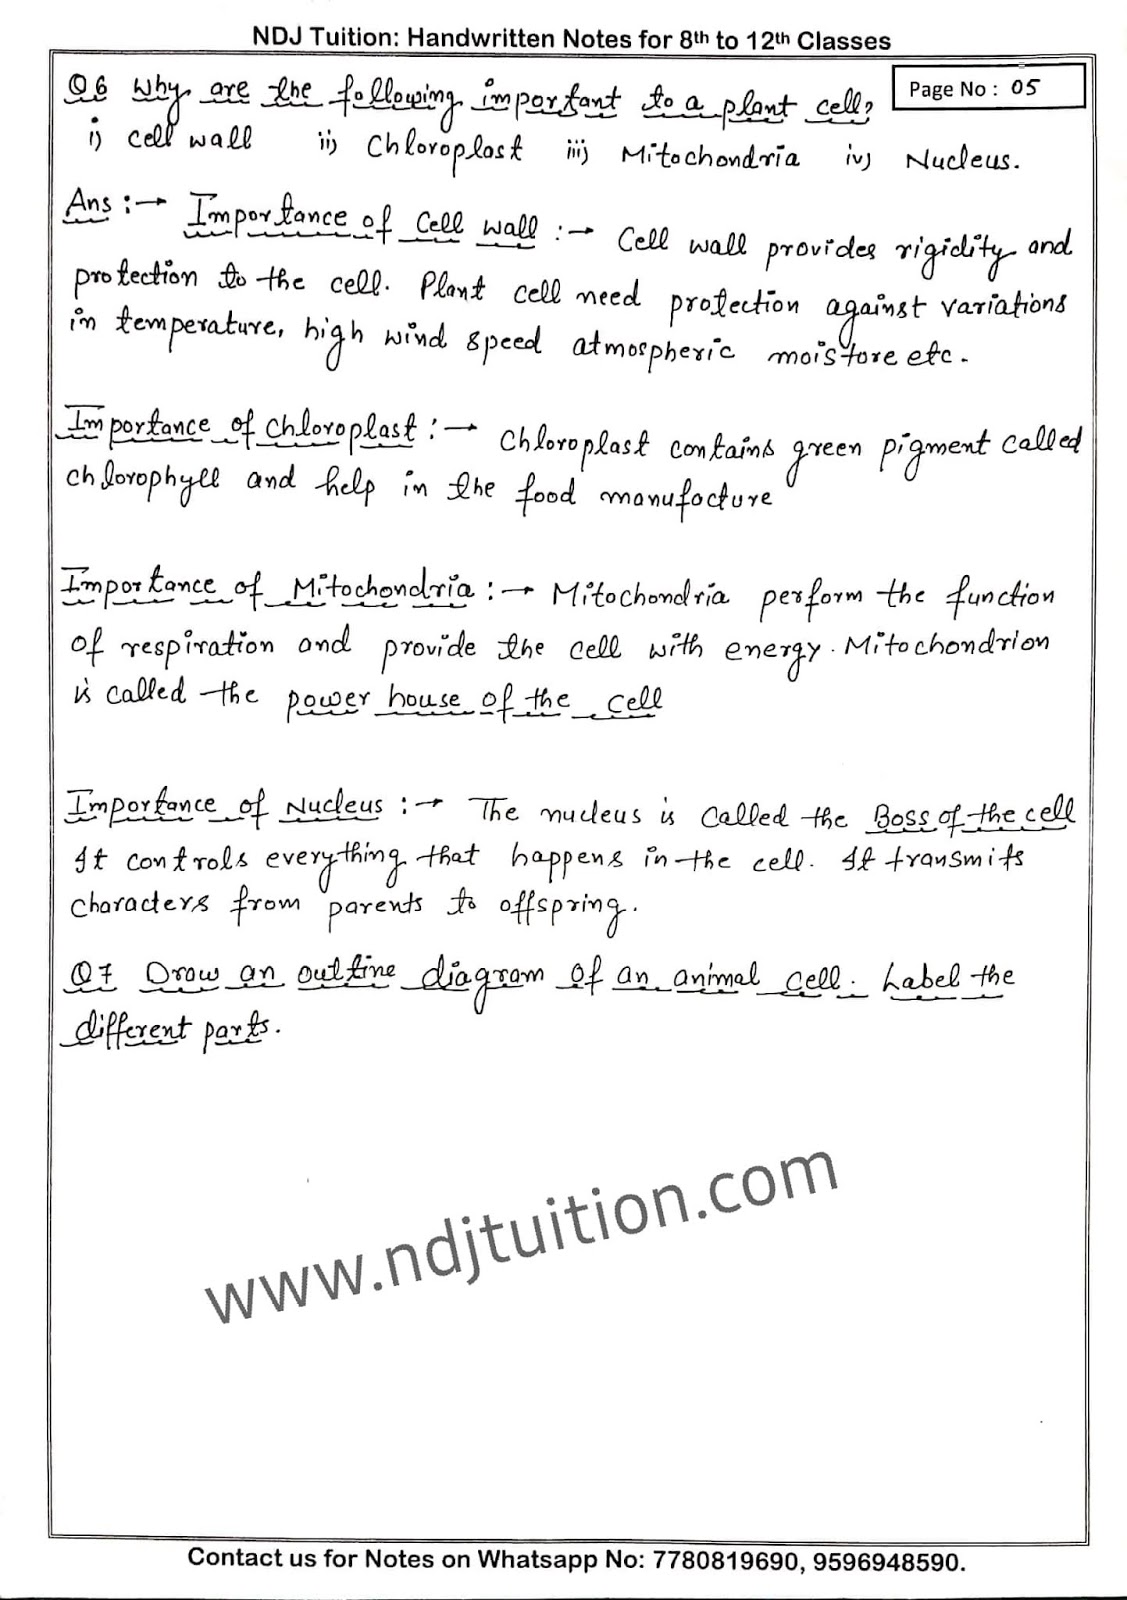 NDJ Tuition: Handwritten Notes for 8th to 12th Classes
Page No : 05
Q6 Why are the following important to a plant cell?
i) cell wall ii) Chloroplast iii) Mitochondria iv) Nucleus.
Ans :→ Importance of Cell wall :→ Cell wall provides rigidity and
protection to the cell. Plant cell need protection against variations
in temperature, high wind speed atmospheric moistore etc.
Importance of chloroplast :→ Chloroplast contains green pigment called
chlorophyll and help in the food manufacture
Importance of Mitochondria :→ Mitochondria perform the function
of respiration and provide the cell with energy. Mitochondrion
is called the power house of the cell
Importance of Nucleus :→ The nucleus is called the Boss of the cell
It controls everything that happens in the cell. It transmits
characters from parents to offspring.
Q7 Draw an outline diagram of an animal cell. Label the
different parts.
www.ndjtuition.com
Contact us for Notes on Whatsapp No: 7780819690, 9596948590.